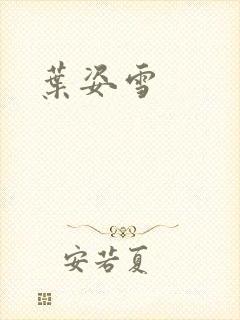 葉姿雪
安若夏